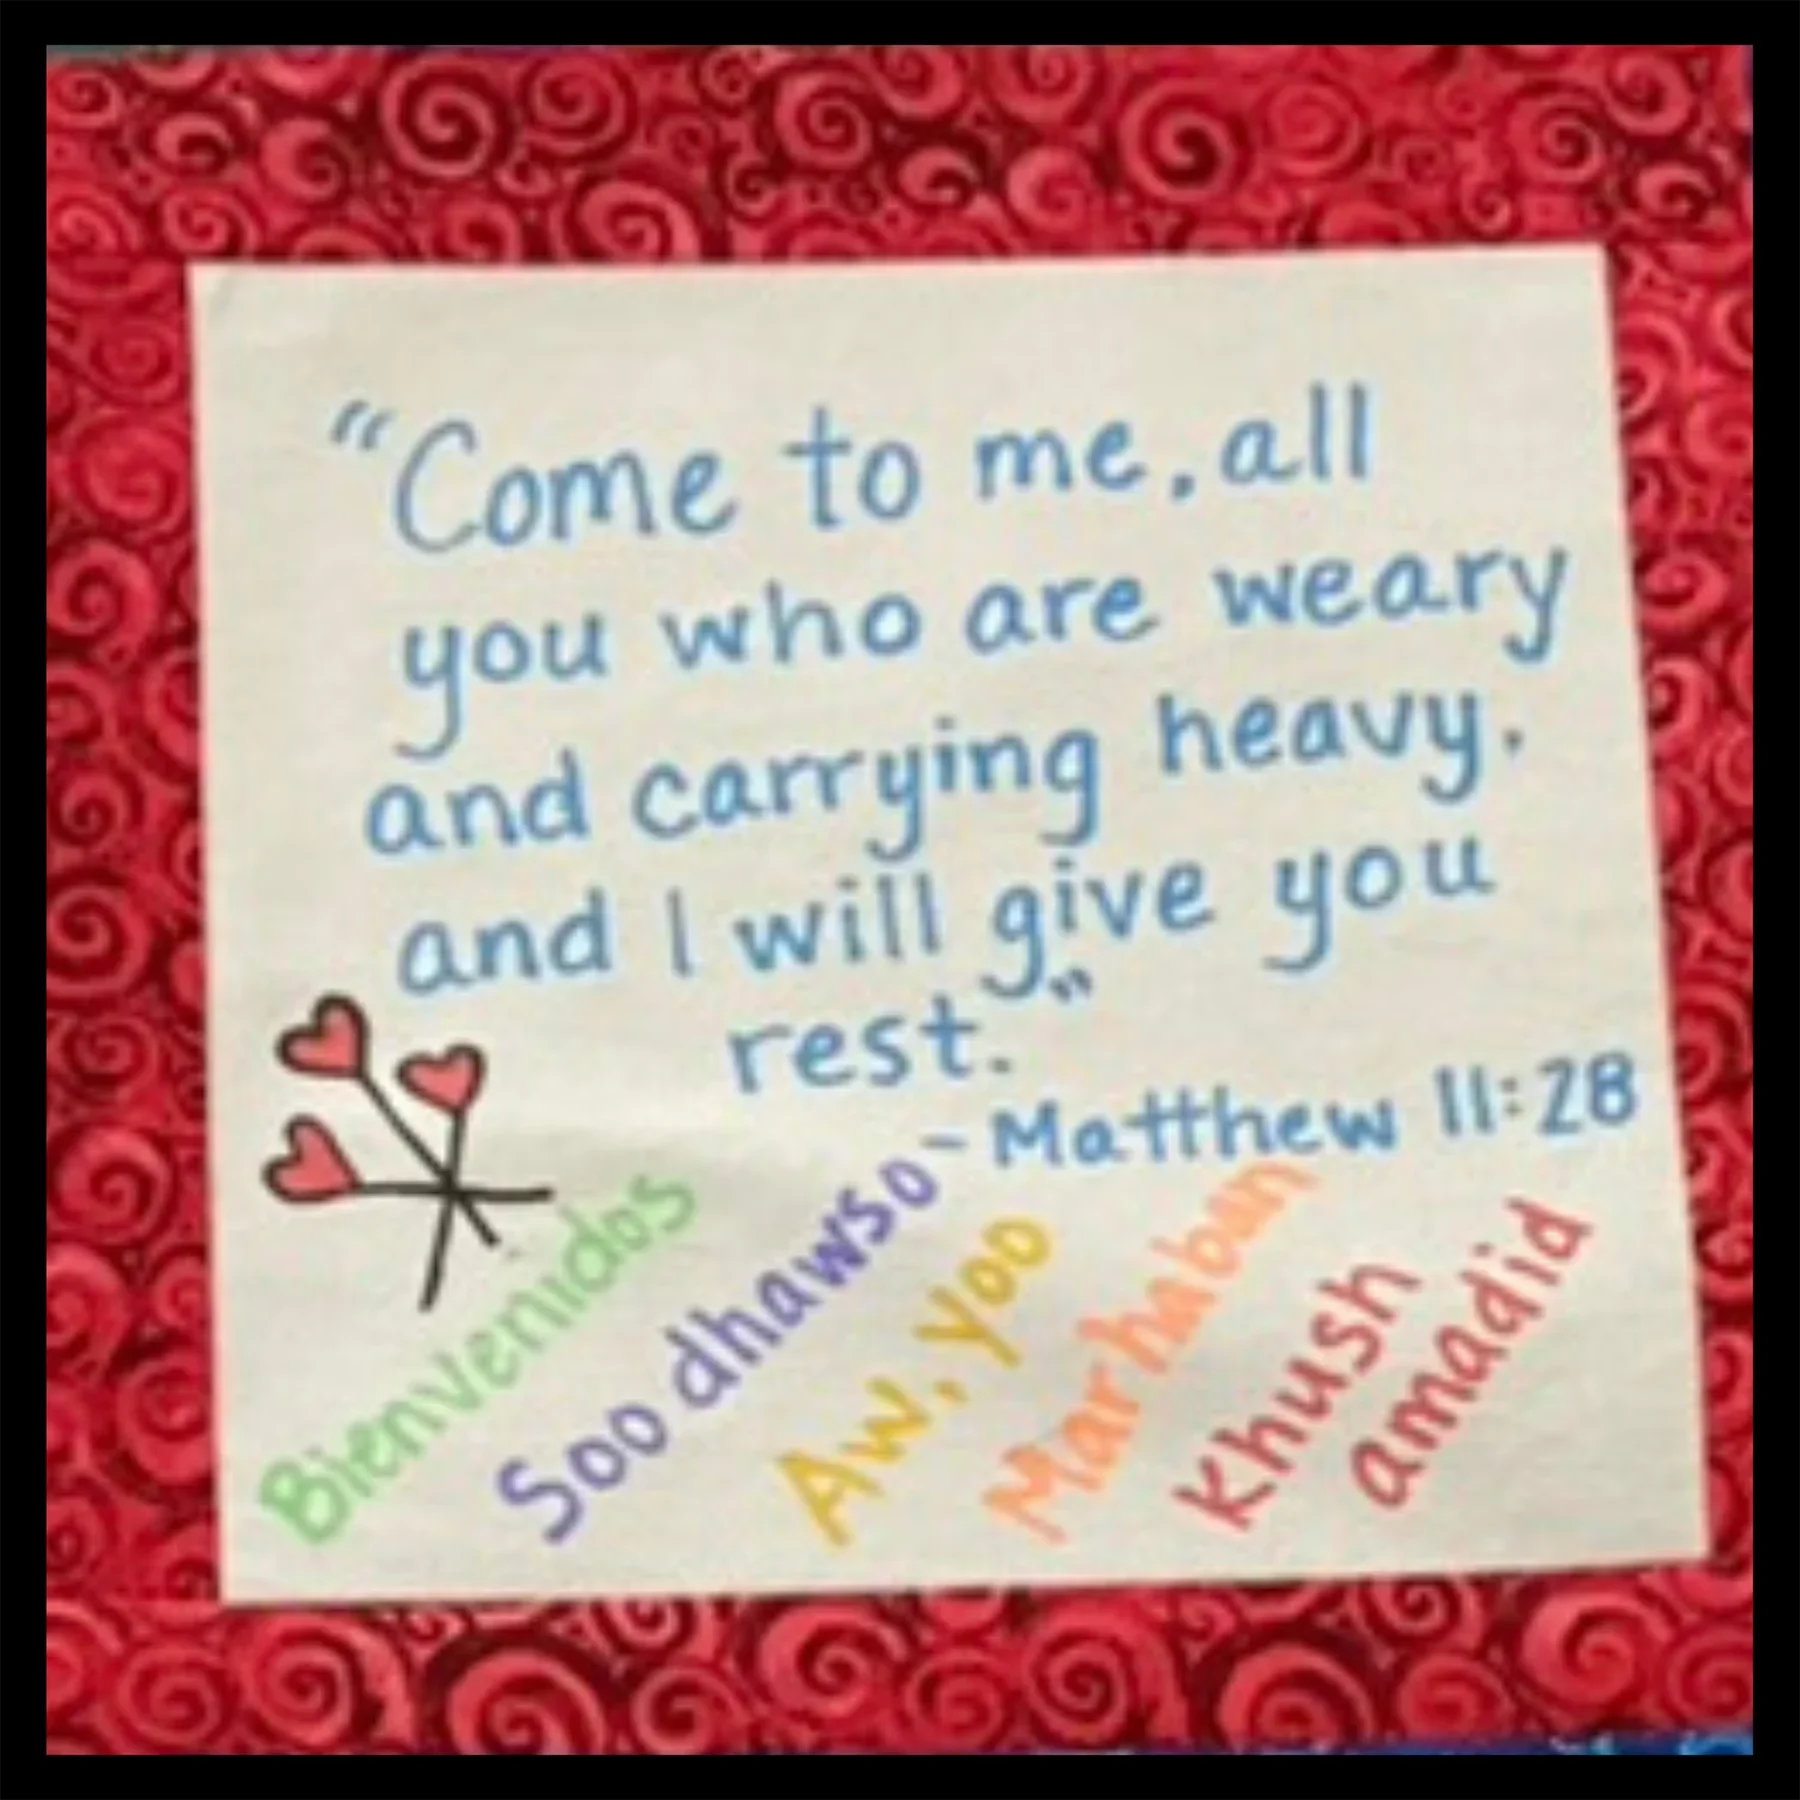 "Come to me, all
you who are weary
and carrying heavy.
and I will give you
rest."
- Matthew 11:28
Bienvenidos
Soo dhawso
Aw, yoo
Marhaban
Khush
amadid